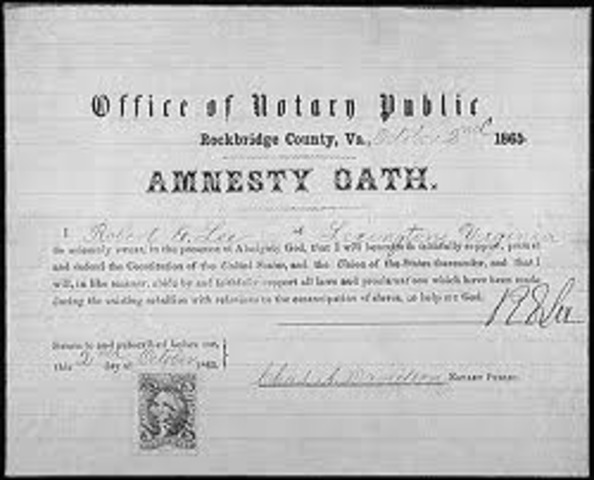 Office of Notary Public
Rockbridge County, Va., October 2nd 1865
AMNESTY OATH.
I Robert E. Lee of Lexington Virginia
do solemnly swear, in the presence of Almighty God, that I will henceforth faithfully support, protect
and defend the Constitution of the United States, and the Union of the States thereunder, and that I
will, in like manner, abide by and faithfully support all laws and proclamations which have been made
during the existing rebellion with reference to the emancipation of slaves, so help me God.
RE Lee
Sworn to and subscribed before me,
this 2nd day of October 1865.
Notary Public.